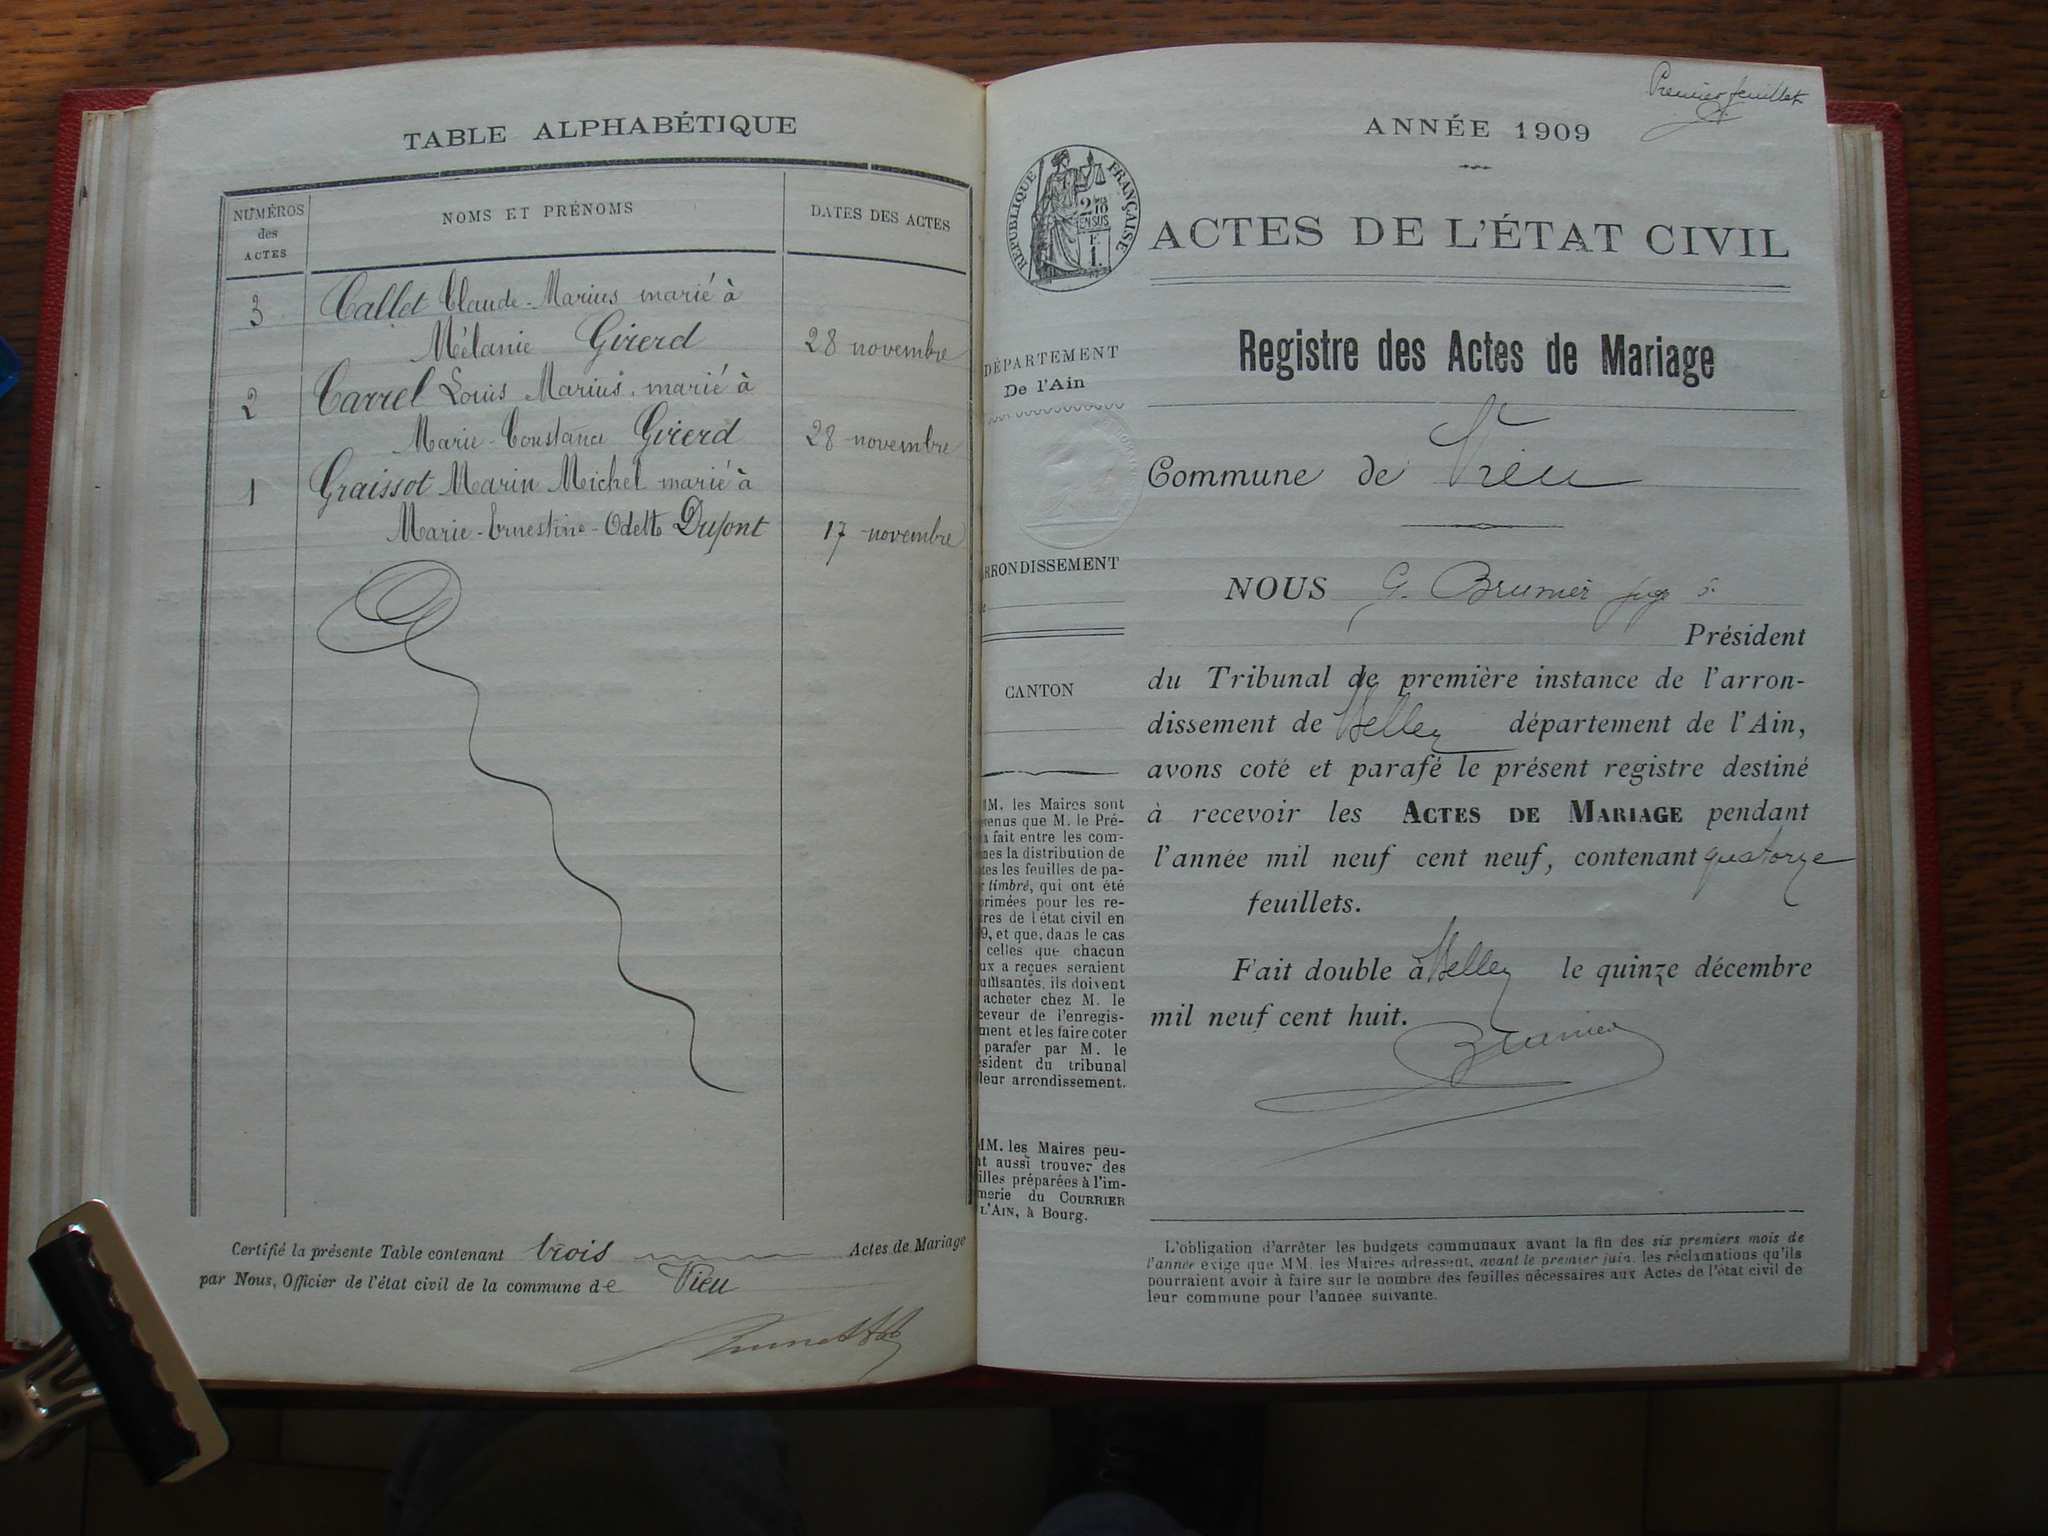 TABLE ALPHABÉTIQUE
NUMÉROS
des
ACTES
NOMS ET PRÉNOMS
DATES DES ACTES
3 Callet Claude-Marius marié à
Mélanie Girerd 28 novembre
2 Carrel Louis Marius, marié à
Marie-Constance Girerd 28 novembre
1 Graissot Marin Michel marié à
Marie-Ernestine-Odette Dupont 17 novembre
Certifié la présente Table contenant trois Actes de Mariage
par Nous, Officier de l'état civil de la commune de Vieu
Premier feuillet
ANNÉE 1909
RÉPUBLIQUE FRANÇAISE
2/10
EN SUS
F.
1.
ACTES DE L'ÉTAT CIVIL
Registre des Actes de Mariage
DÉPARTEMENT
De l'Ain
Commune de Vieu
RRONDISSEMENT
CANTON
MM. les Maires sont
enus que M. le Pré-
a fait entre les com-
nes la distribution de
tes les feuilles de pa-
r timbré, qui ont été
primées pour les re-
res de l'état civil en
9, et que, dans le cas
celles que chacun
ux a reçues seraient
uffisantes, ils doivent
acheter chez M. le
ceveur de l'enregis-
ment et les faire coter
parafer par M. le
ésident du tribunal
leur arrondissement.
MM. les Maires peu-
nt aussi trouver des
illes préparées à l'im-
merie du COURRIER
L'AIN, à Bourg.
NOUS G. Brunier juge
Président
du Tribunal de première instance de l'arron-
dissement de Belley département de l'Ain,
avons coté et parafé le présent registre destiné
à recevoir les ACTES DE MARIAGE pendant
l'année mil neuf cent neuf, contenant quatorze
feuillets.
Fait double à Belley le quinze décembre
mil neuf cent huit.
Brunier
L'obligation d'arrêter les budgets communaux avant la fin des six premiers mois de
l'année exige que MM. les Maires adressent, avant le premier juin, les réclamations qu'ils
pourraient avoir à faire sur le nombre des feuilles nécessaires aux Actes de l'état civil de
leur commune pour l'année suivante.